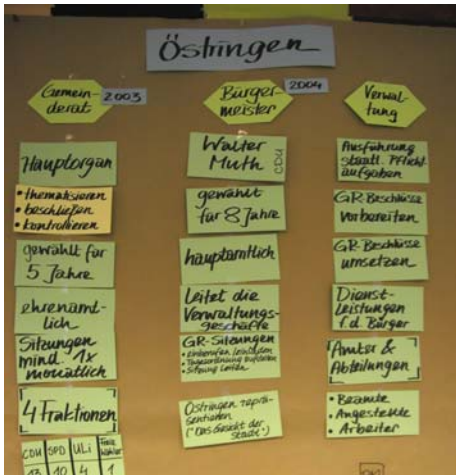 Östringen
Gemein-
derat
2003
Hauptorgan
• thematisieren
• beschließen
• kontrollieren
gewählt für
5 Jahre
ehrenamt-
lich
Sitzungen
mind. 1x
monatlich
4 Fraktionen
CDU SPD ULi Freie
Wähler
13 10 4 1
Bürger-
meister
2004
Walter
Muth CDU
gewählt
für 8 Jahre
hauptamtlich
Leitet die
Verwaltungs-
geschäfte
GR-Sitzungen
• einberufen
• Tagesordnung
• Sitzung leiten
Östringen reprä-
sentieren
("Das Gesicht der
Stadt")
Verwal-
tung
Ausführung
staatl. Pflicht-
aufgaben
GR-Beschlüsse
vorbereiten
GR-Beschlüsse
umsetzen
Dienst-
Leistungen
f.d. Bürger
Ämter &
Abteilungen
• Beamte
• Angestellte
• Arbeiter